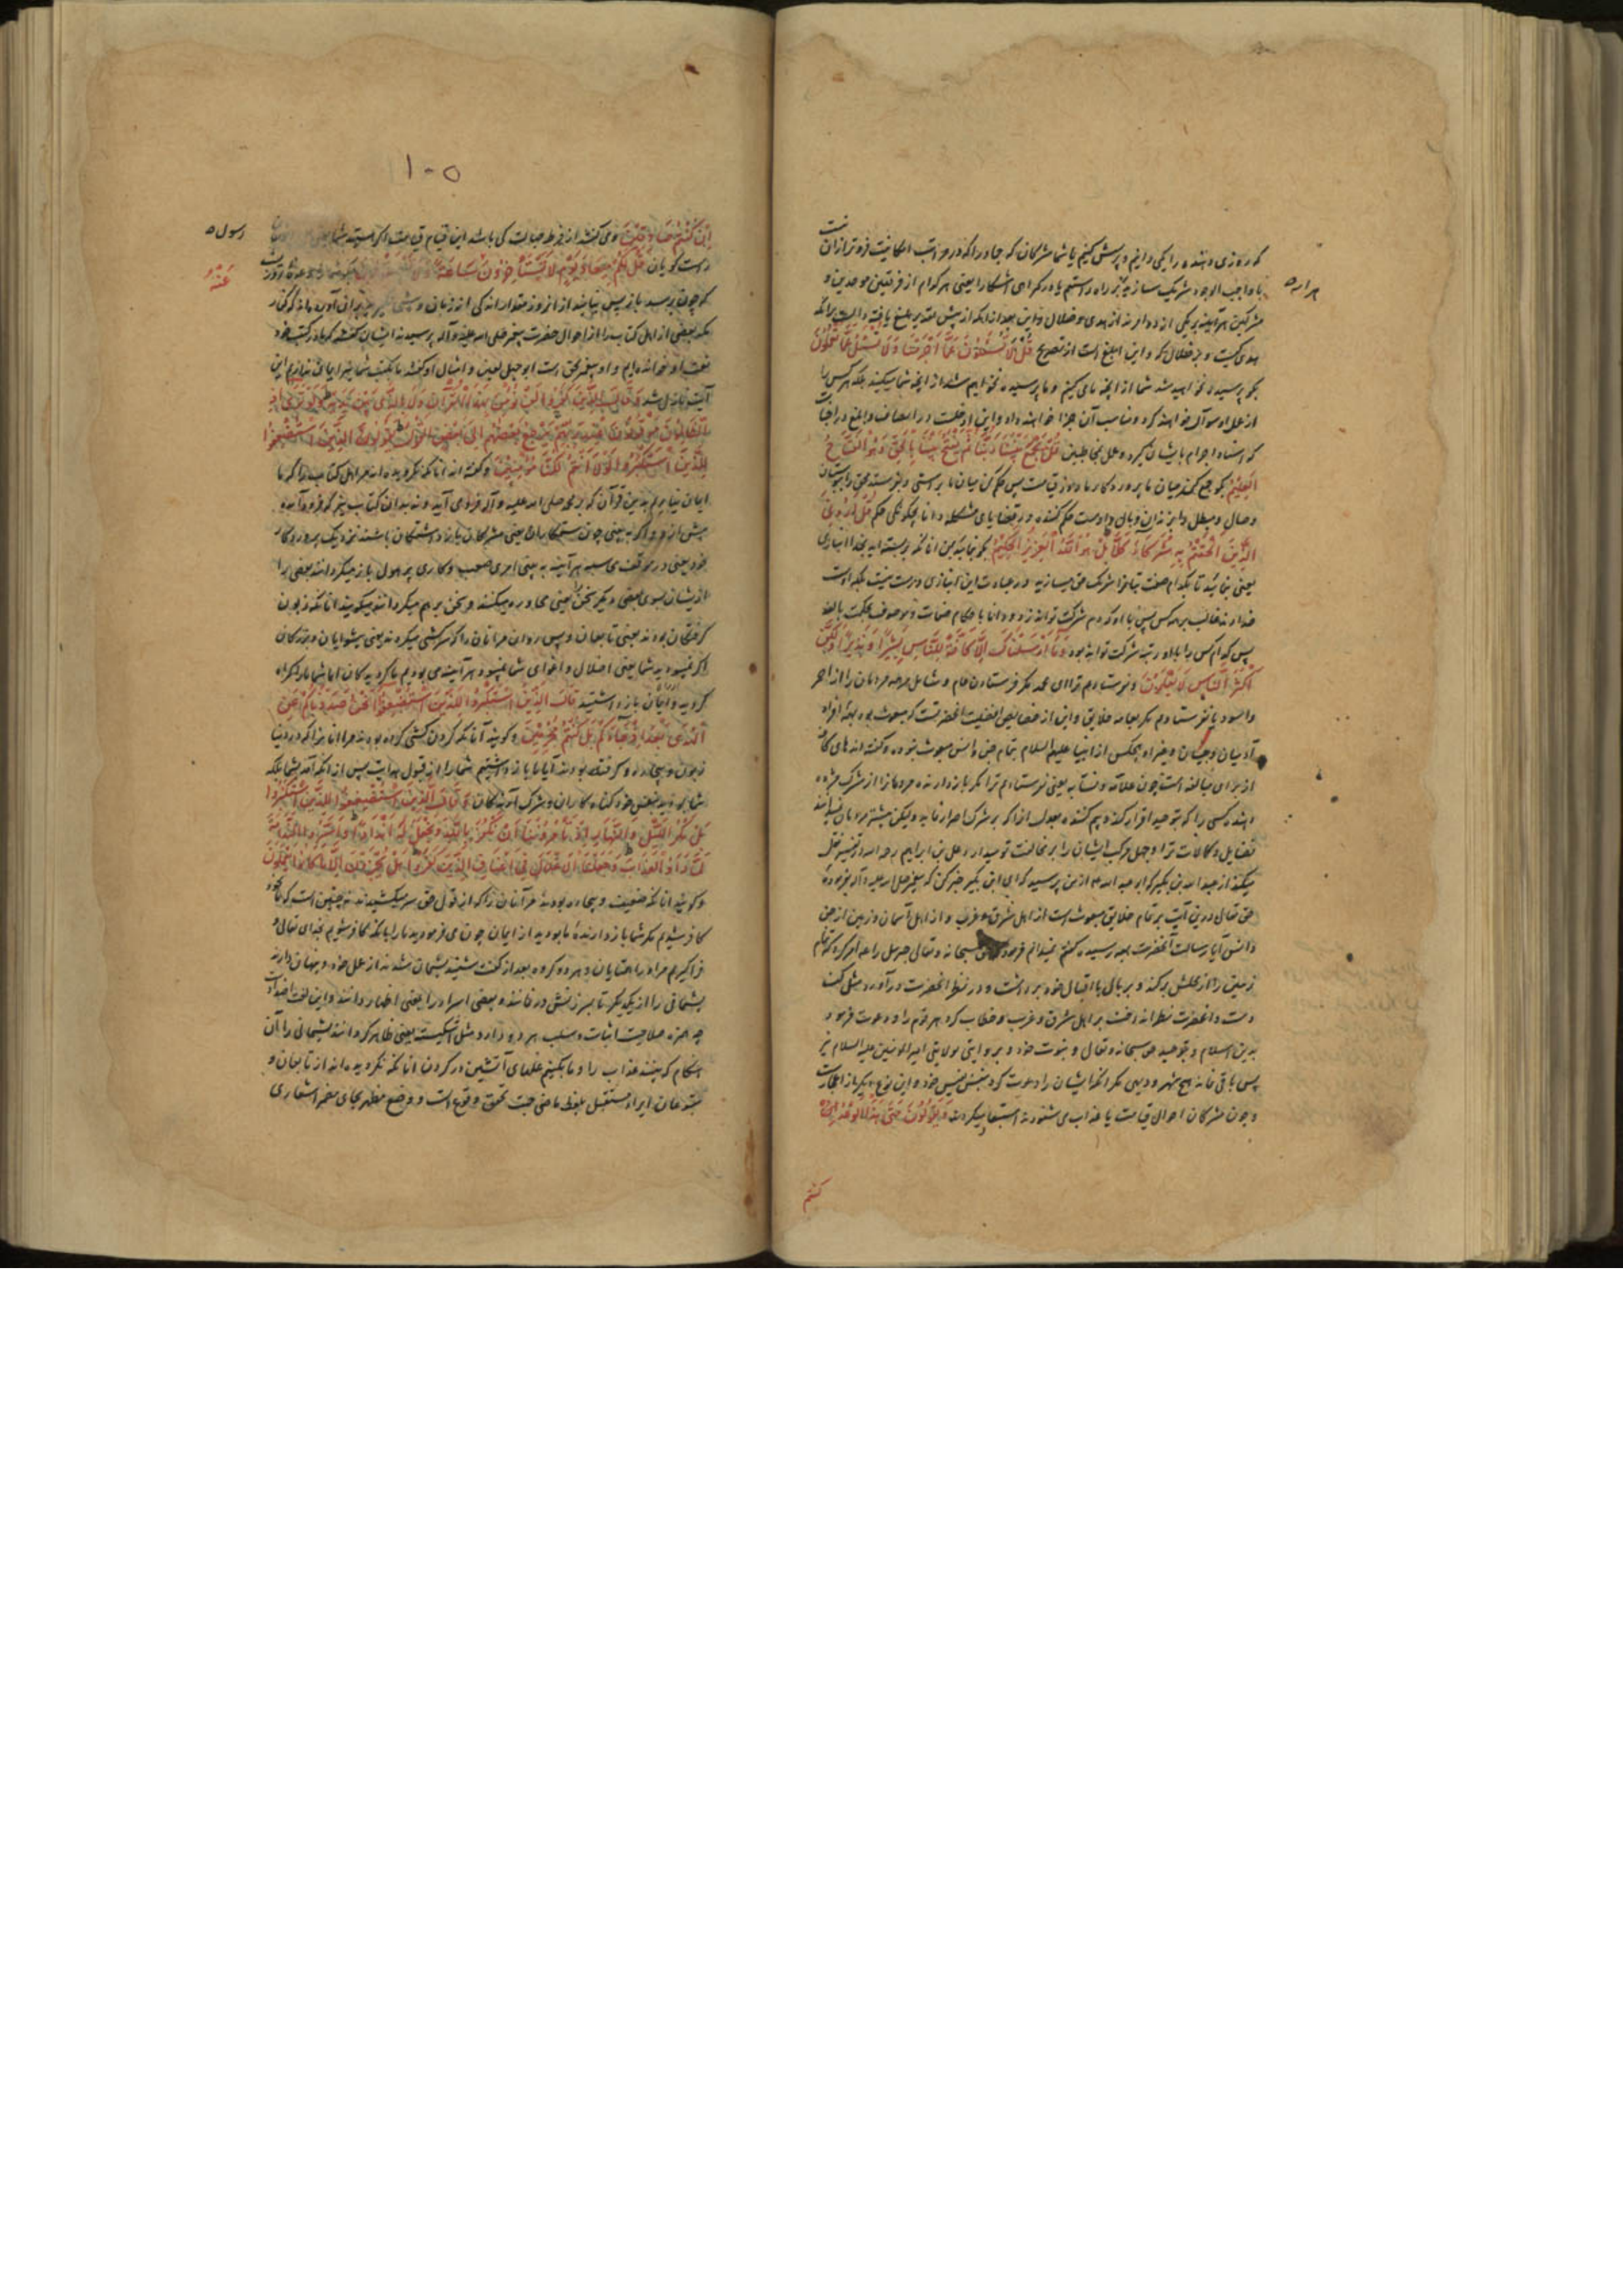 که روزی دهنده را یکی دانیم و پرستش کنیم یا شما مشرکان که جماد را که در مراتب امکانیت فروتر از آن نیست
با واجب الوجود شریک سازید بر راه راستیم یا در گمراهی آشکارا یعنی هر کدام از فریقین موحدین و
هر آینه
مشرکین هر آینه بر یکی از دو امرند از هدی و ضلال و این بعد از آنکه از پیش تقدیر بلیغ یافته دلالت بر آنکه
هدی کیست و در ضلال که و این ابلغ است از تصریح قُلْ لَا تُسْئَلُونَ عَمَّا أَجْرَمْنَا وَلَا نُسْئَلُ عَمَّا تَعْمَلُونَ
بگو پرسیده نخواهید شد شما از آنچه ما می کنیم و ما پرسیده نخواهیم شد از آنچه شما میکنید بلکه هر کس را
از عمل او سوال خواهند کرد و مناسب آن جزا خواهند داد و این ادخلست در انصاف و ابلغ در اجابت
که اسناد اجرام بایشان کرد و عمل بمخاطبین قُلْ يَجْمَعُ بَيْنَنَا رَبُّنَا ثُمَّ يَفْتَحُ بَيْنَنَا بِالْحَقِّ وَهُوَ الْفَتَّاحُ
الْعَلِيمُ بگو جمع کند میان ما پروردگار ما در روز قیامت پس حکم کن میان ما براستی
وصال و مبطل را بزندان وبال و اوست حکم کننده در قضایای مشکله دانا بچگونگی حکم قُلْ أَرُونِيَ
الَّذِينَ أَلْحَقْتُمْ بِهِ شُرَكَاءَ كَلَّا بَلْ هُوَ اللَّهُ الْعَزِيزُ الْحَكِيمُ بگو بنمائید بمن آنانکه بربسته اید بخدا انبازی
یعنی بنمائید تا بکدام صفت بتانرا شریک حق میسازید در عبادت این انبازی درست نیست بلکه اوست
خداوند غالب بر همه کس پس با او که دم شرکت تواند زد و دانا باحکام صفات و موصوف بحکمت بالغه
پس کدام کس را با او رتبه شرکت تواند بود وَمَا أَرْسَلْنَاكَ إِلَّا كَافَّةً لِلنَّاسِ بَشِيرًا وَنَذِيرًا وَلَكِنَّ
أَكْثَرَ النَّاسِ لَا يَعْلَمُونَ و نفرستادیم ترا ای محمد مگر فرستادن عام و شامل مر همه مردمان را از احمر
و اسود یا نفرستادیم مگر بعامه خلایق و این از خصایص آنحضرتست که مبعوث بوده بهمه افراد
آدمیان و جنیان و غیر او هیچکس از انبیا علیهم السلام بتمام جن و انس مبعوث نبوده و گفته اند های کافه
از برای مبالغه است چون علامه و نسابه یعنی نفرستادیم ترا مگر بازدارنده مردمانرا از شرک مژده
دهنده کسی را که بتوحید اقرار کند و بیم کننده بعدل از آنکه بر شرک اصرار نماید ولیکن بیشتر مردمان نمیدانند
فضایل و کمالات ترا و جهل مرکب ایشان را بر مخالفت تو میدارد علی بن ابراهیم رحمه الله در تفسیر نقل
میکند از عبد الله بن بکیر که ابو عبد الله از من پرسید که ای ابن بکیر خبر کن که پیغمبر صلی الله علیه و آله بفرموده
حق تعالی درین آیت بر تمام خلایق مبعوث است از اهل شرق و غرب و از اهل آسمان و زمین از جن
و انس آیا رسالت آنحضرت بهمه رسیده گفتم نمیدانم فرمود حق سبحانه و تعالی جبرئیل را امر کرد که تمام
زمین را از محلش برکند و بر بال با اقبال خود برداشت و در نظر آنحضرت در آورد مثل کف
دست و آنحضرت نظر انداخت بر اهل شرق و غرب و خطاب کرد هر قوم را و دعوت فرمود
بدین اسلام و بتوحید حق سبحانه و تعالی و نبوت خود و بروایتی بولایتی امیر المومنین علیه السلام نیز
پس باقی نماند هیچ شهر و دیهی مگر آنکه ایشان را دعوت کرد بنفس نفیس خود و این نوع دیگر از
و چون مشرکان احوال قیامت یا عذاب می شنودند استبعاد میکردند وَيَقُولُونَ مَتَى هَذَا الْوَعْدُ إِنْ
کنتم
۱۰۵
إِنْ كُنْتُمْ صَادِقِينَ و می گفتند از فرط جهالت کی باشد این قیام قیامت اگر هستید شما
رسول
راست گویان قُلْ لَكُمْ مِيعَادُ يَوْمٍ لَا تَسْتَأْخِرُونَ سَاعَةً وَلَا تَسْتَقْدِمُونَ
عَنْهُ
که چون برسد بازپس نیایید از آن روز مقدار اندکی از زمان و پیشی نگیرید
بعضی از اهل کتاب را از احوال حضرت پیغمبر صلی الله علیه و آله پرسیدند ایشان گفتند که ما در کتب خود
نعت او خوانده ایم و او پیغمبر بحق است ابو جهل لعین و امثال او گفتند ما بکتب شما نیز ایمان نداریم این
آیت نازل شد وَقَالَ الَّذِينَ كَفَرُوا لَنْ نُؤْمِنَ بِهَذَا الْقُرْآنِ وَلَا بِالَّذِي بَيْنَ يَدَيْهِ وَلَوْ تَرَى إِذِ
الظَّالِمُونَ مَوْقُوفُونَ عِنْدَ رَبِّهِمْ يَرْجِعُ بَعْضُهُمْ إِلَى بَعْضٍ الْقَوْلَ يَقُولُ الَّذِينَ اسْتُضْعِفُوا
لِلَّذِينَ اسْتَكْبَرُوا لَوْلَا أَنْتُمْ لَكُنَّا مُؤْمِنِينَ و گفته اند آنانکه نگرویده اند مر اهل کتاب را که ما
ایمان نیاریم بدین قرآن که بر محمد صلی الله علیه و آله فرود می آید و نه بدان کتاب نیز که فرود آمده
پیش از و و اگر به بینی چون ستمکاران یعنی مشرکان بازداشتگان باشند نزدیک پروردگار
خود یعنی در موقف محاسبه هر آینه به بینی امری صعب و کاری پر هول باز میگردانند بعضی را
از ایشان بسوی بعضی دیگر سخن را یعنی محاوره میکنند و سخن بر هم میگردانند میگویند آنانکه زبون
گرفتگان بودند یعنی تابعان و پس روان مر آنان را که سرکشی میکردند یعنی پیشوایان و بزرگان
اگر نمیبودید شما یعنی اضلال و اغوای شما نمیبود هر آینه می بودیم ما گرویدگان اما شما ما را گمراه
کردید و از ایمان باز داشتید قَالَ الَّذِينَ اسْتَكْبَرُوا لِلَّذِينَ اسْتُضْعِفُوا أَنَحْنُ صَدَدْنَاكُمْ عَنِ
الْهُدَى بَعْدَ إِذْ جَاءَكُمْ بَلْ كُنْتُمْ مُجْرِمِينَ و گویند آنانکه گردن کشی کرده بودند مر آنانرا که در دنیا
زبون و بیچاره و گرفته بودند آیا ما باز داشتیم شما را از قبول هدایت پس از آنکه آمد بشما بلکه
شما بودید بنفس خود گناه کاران و شرک آرندگان وَقَالَ الَّذِينَ اسْتُضْعِفُوا لِلَّذِينَ اسْتَكْبَرُوا
بَلْ مَكْرُ اللَّيْلِ وَالنَّهَارِ إِذْ تَأْمُرُونَنَا أَنْ نَكْفُرَ بِاللَّهِ وَنَجْعَلَ لَهُ أَنْدَادًا وَأَسَرُّوا النَّدَامَةَ
لَمَّا رَأَوُا الْعَذَابَ وَجَعَلْنَا الْأَغْلَالَ فِي أَعْنَاقِ الَّذِينَ كَفَرُوا هَلْ يُجْزَوْنَ إِلَّا مَا كَانُوا يَعْمَلُونَ
و گویند آنانکه ضعیف و بیچاره بودند مر آنان را که از قول حق سر میکشیدند نه چنین است که ما بخود
کافر شدیم مگر شما بازدارنده ما بودید از ایمان چون می فرمودید ما را بآنکه کافر شویم بخدای تعالی و
فراگیریم مر او را همتایان و هر دو گروه بعد از گفت شنید پشیمان شدند از عمل خود و پنهان دارند
پشیمانی را از یکدیگر تا بسرزنش درنمانند و بعضی اسرار را یعنی اظهار دانند و این لغت اضداد است
چه همزه صلاحیت اثبات و سلب هر دو دارد و مثل اشکیت یعنی ظاهر گردانند پشیمانی را آن
هنگام که بینند عذاب را و ما بکنیم غلهای آتشین در گردن آنانکه نگرویده اند از تابعان و
متبوعان ایراد مستقبل بلفظ ماضی جهت تحقق وقوع است و وضع مظهر بجای مضمر اشعاری